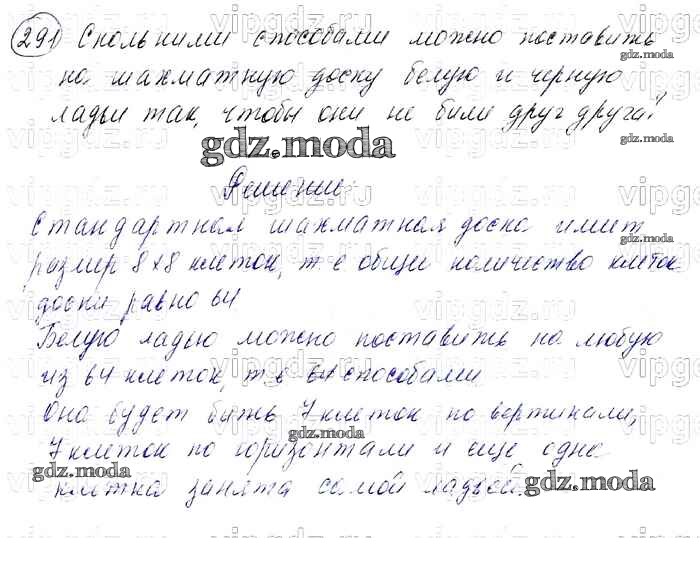 291 Сколькими способами можно поставить
на шахматную доску белую и черную
ладьи так, чтобы они не били друг друга?
gdz.moda
Решение:
Стандартная шахматная доска имеет
размер 8х8 клеток, т е общее количество клеток
доски равно 64
Белую ладью можно поставить на любую
из 64 клеток, т е 64 способами
Она будет бить 7 клеток по вертикали,
7 клеток по горизонтали и еще одна
клетка занята самой ладьей.
gdz.moda
gdz.moda
gdz.moda
gdz.moda